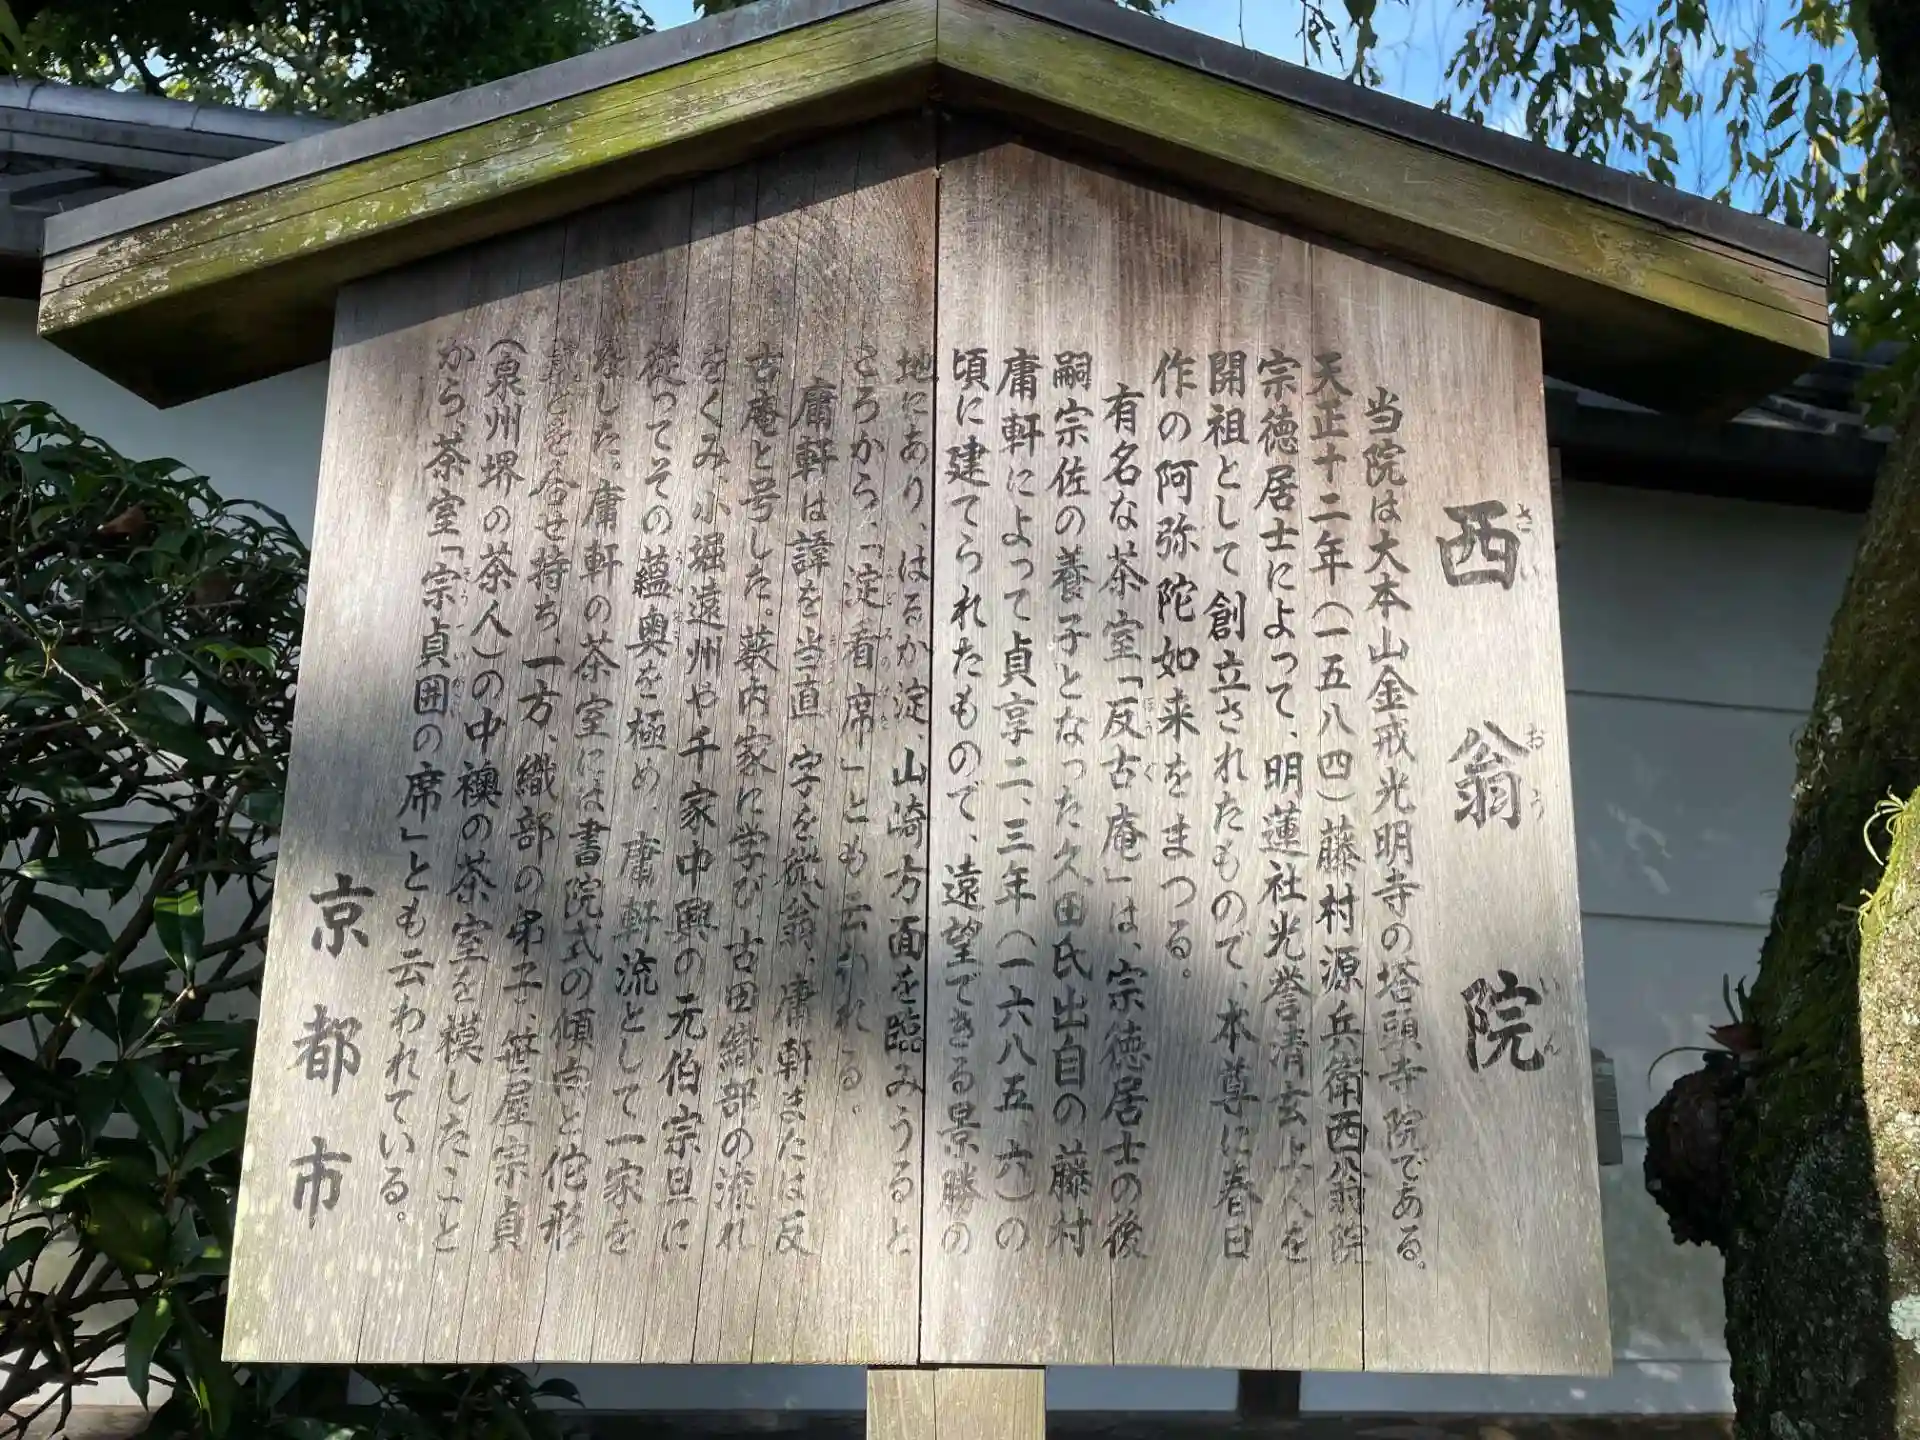 西翁院
さいおういん
当院は大本山金戒光明寺の塔頭寺院である。
天正十二年（一五八四）藤村源兵衛西翁院
宗徳居士によって、明蓮社光誉清玄上人を
開祖として創立されたもので、本尊に春日
作の阿弥陀如来をまつる。
有名な茶室「反古庵」は、宗徳居士の後
ほ ぐ
嗣宗佐の養子となった久田氏出自の藤村
庸軒によって貞享二、三年（一六八五、六）の
頃に建てられたもので、遠望できる景勝の
地にあり、はるか淀、山崎方面を臨みうると
ころから、「淀看席」とも云われる。
よどみのせき
庸軒は諱を当直、字を微翁、庸軒または反
古庵と号した。薮内家に学び、古田織部の流れ
をくみ、小堀遠州や千家中興の元伯宗旦に
従ってその蘊奥を極め、庸軒流として一家を
うんおう
なした。庸軒の茶室には書院式の傾向と佗形
式とを合せ持ち、一方、織部の弟子、笹屋宗貞
（泉州堺の茶人）の中襖の茶室を模したこと
から、茶室「宗貞囲の席」とも云われている。
そうていがこい
京都市